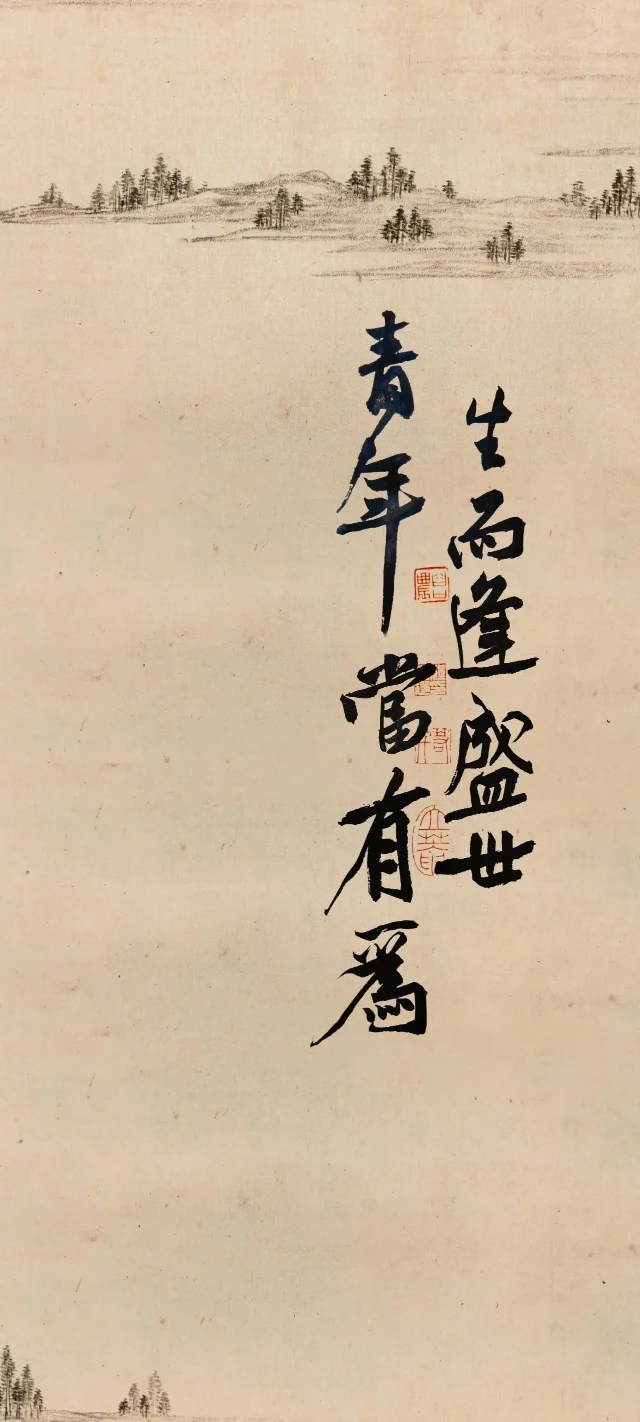 生而逢盛世
青年當有爲